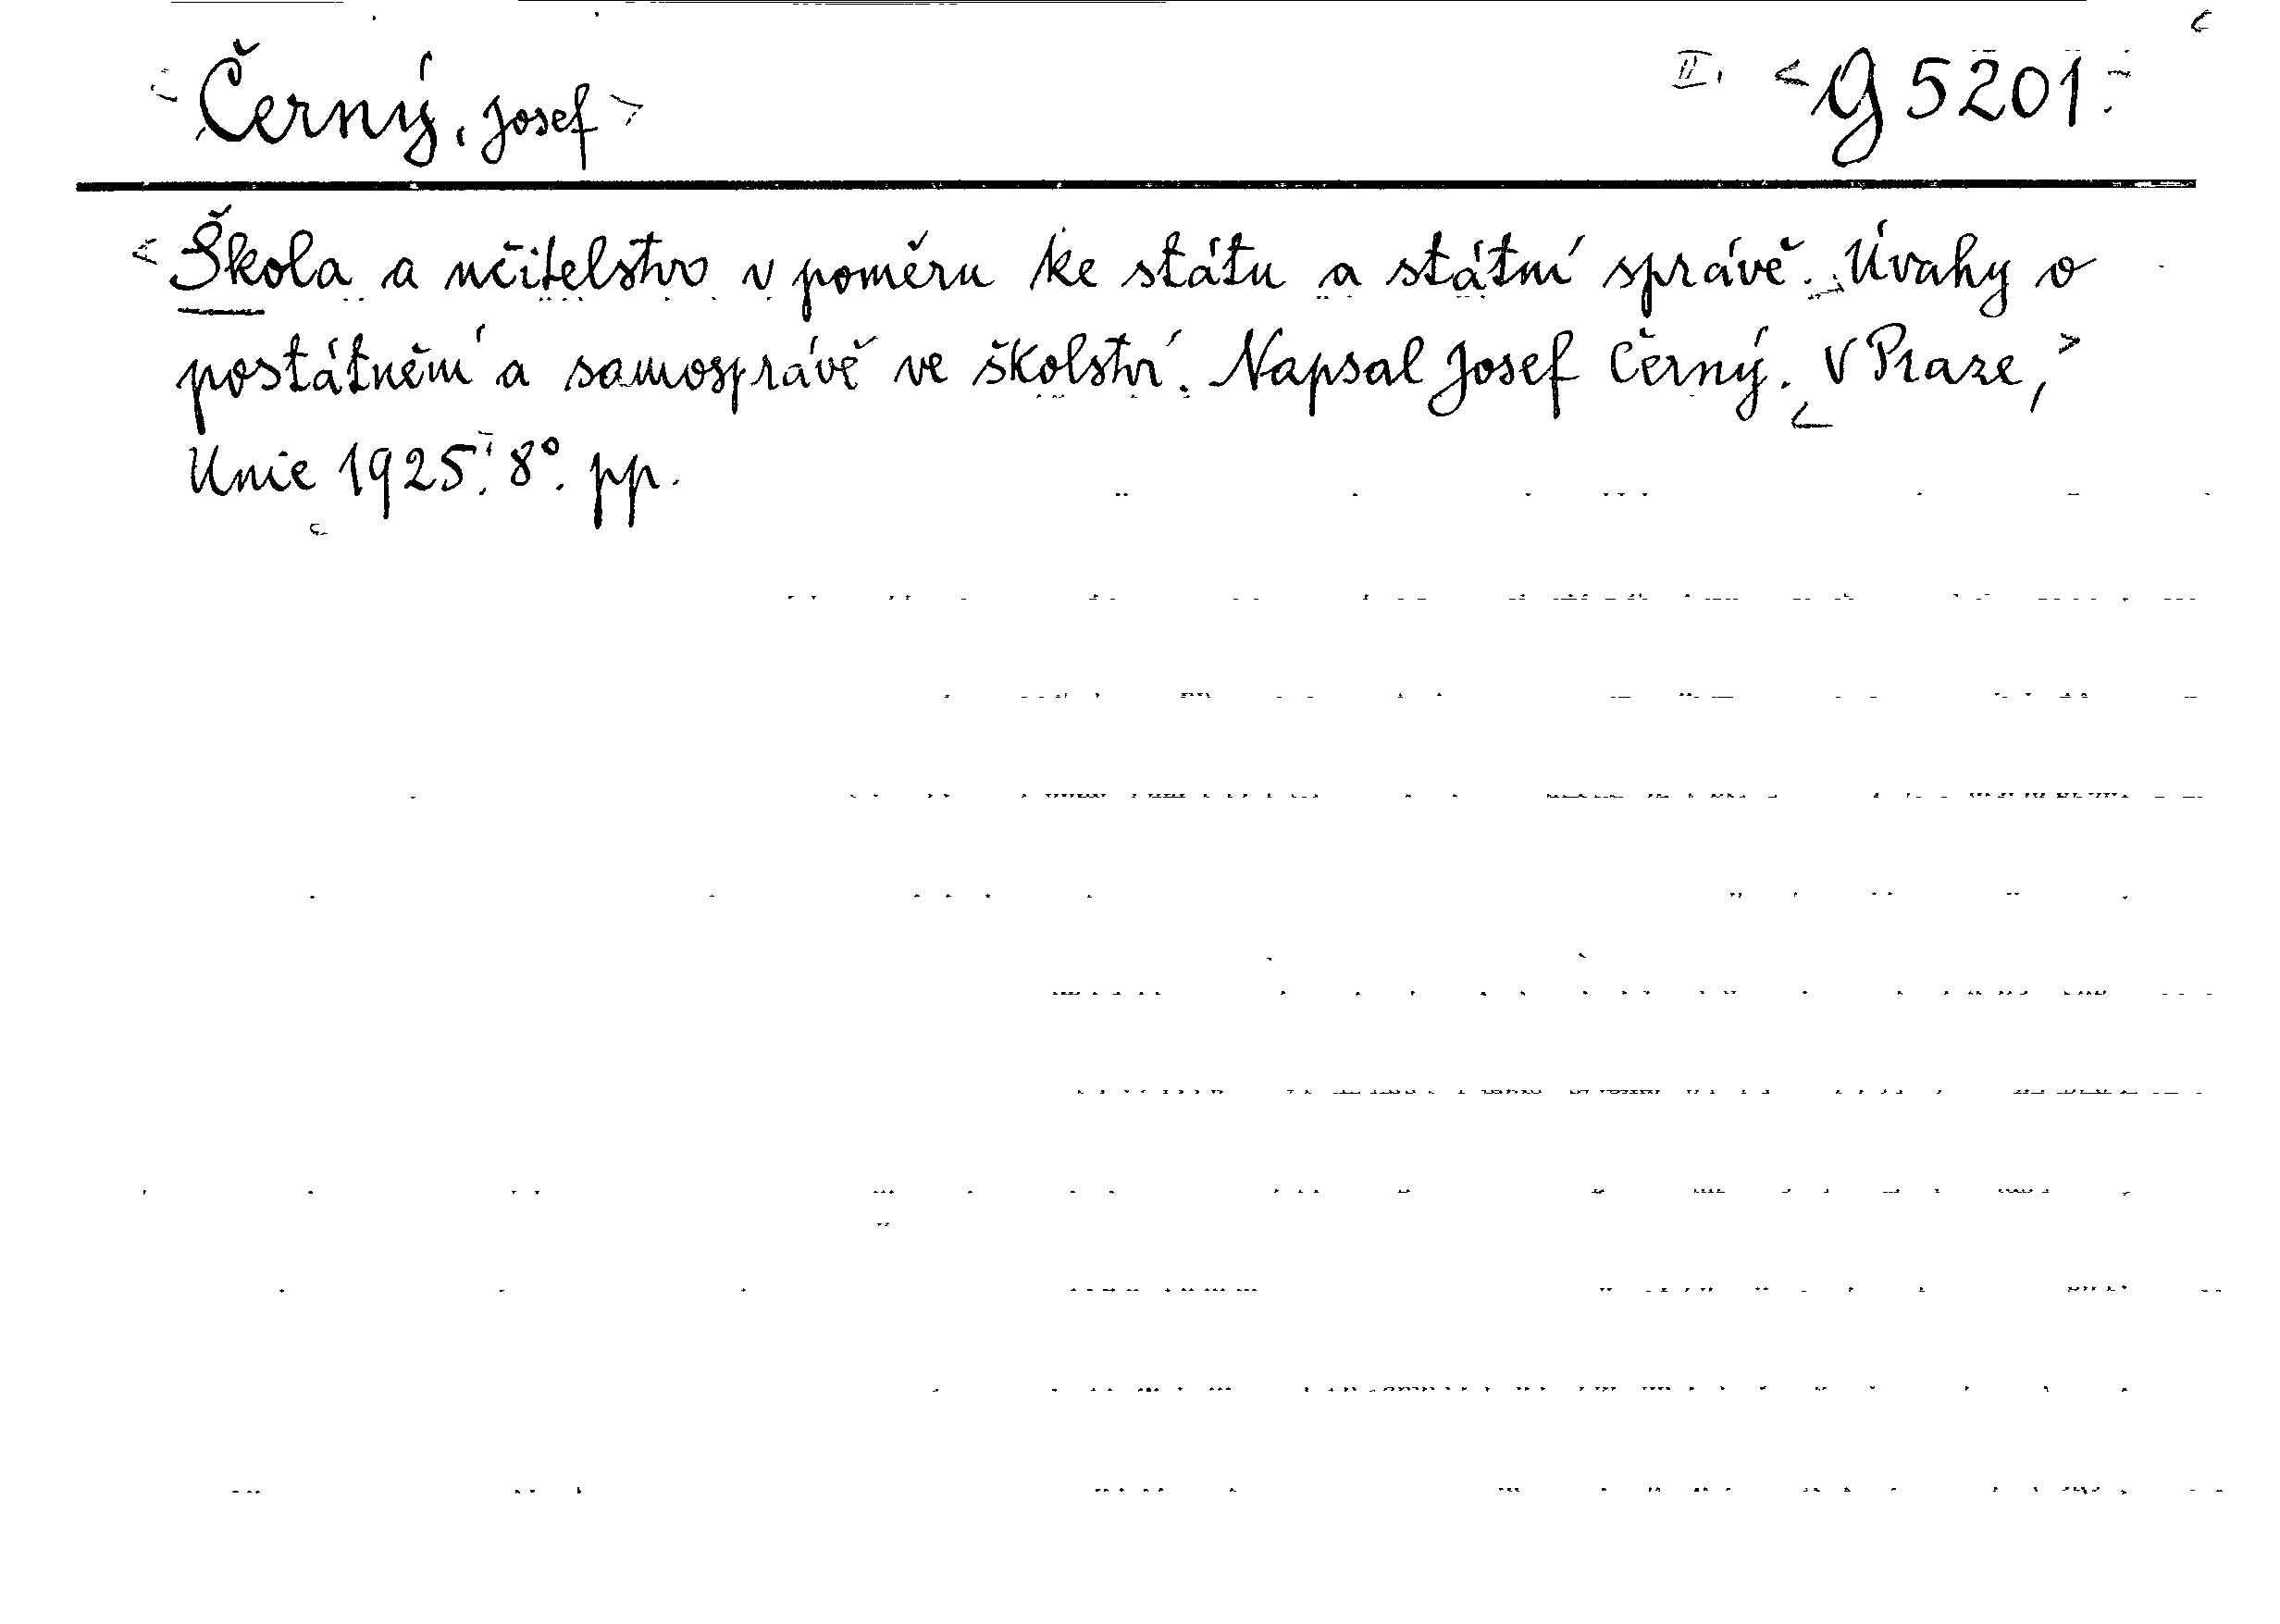 Černý, Josef II. G 5201
Škola a učitelstvo v poměru ke státu a státní správě. Úvahy o
postátnění a samosprávě ve školství. Napsal Josef Černý. V Praze,
Unie 1925. 8°. pp.